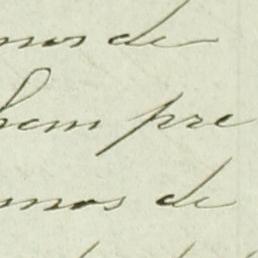 mos de
hem pre
mos de